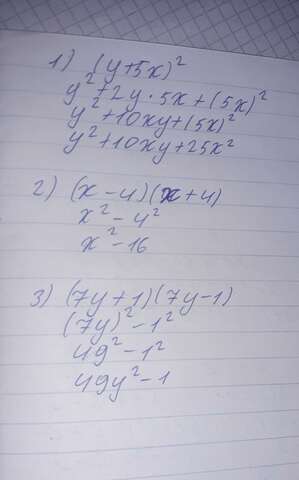 1) (y+5x)²
y²+2y·5x+(5x)²
y²+10xy+(5x)²
y²+10xy+25x²
2) (x-4)(x+4)
x²-4²
x²-16
3) (7y+1)(7y-1)
(7y)²-1²
49²-1²
49y²-1